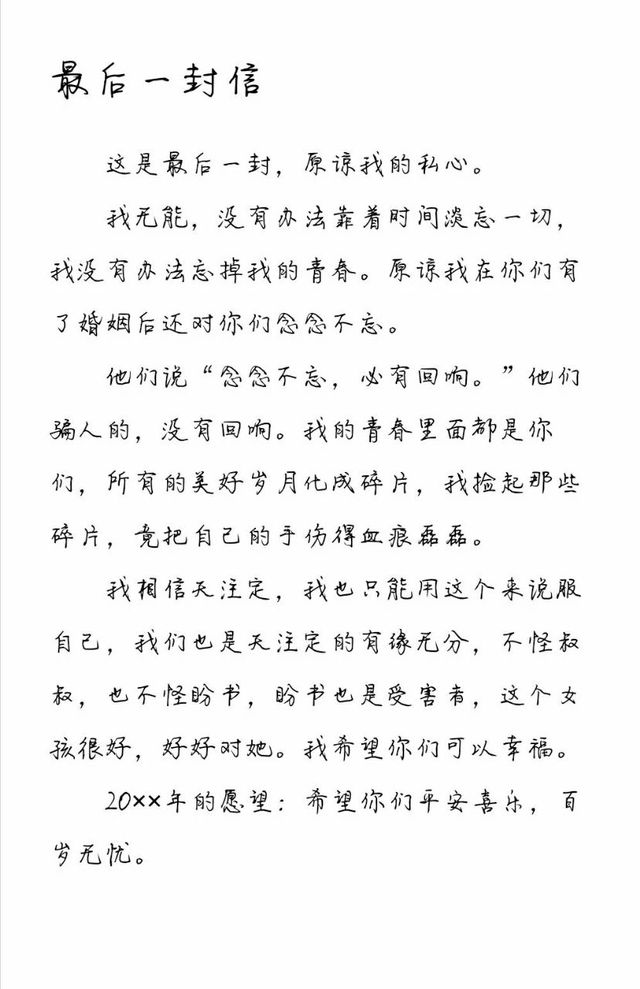 最后一封信
这是最后一封，原谅我的私心。
我无能，没有办法靠着时间淡忘一切，
我没有办法忘掉我的青春。原谅我在你们有
了婚姻后还对你们念念不忘。
他们说“念念不忘，必有回响。”他们
骗人的，没有回响。我的青春里面都是你
们，所有的美好岁月化成碎片，我捡起那些
碎片，竟把自己的手伤得血痕磊磊。
我相信天注定，我也只能用这个来说服
自己，我们也是天注定的有缘无分，不怪叔
叔，也不怪盼书，盼书也是受害者，这个女
孩很好，好好对她。我希望你们可以幸福。
20××年的愿望：希望你们平安喜乐，百
岁无忧。